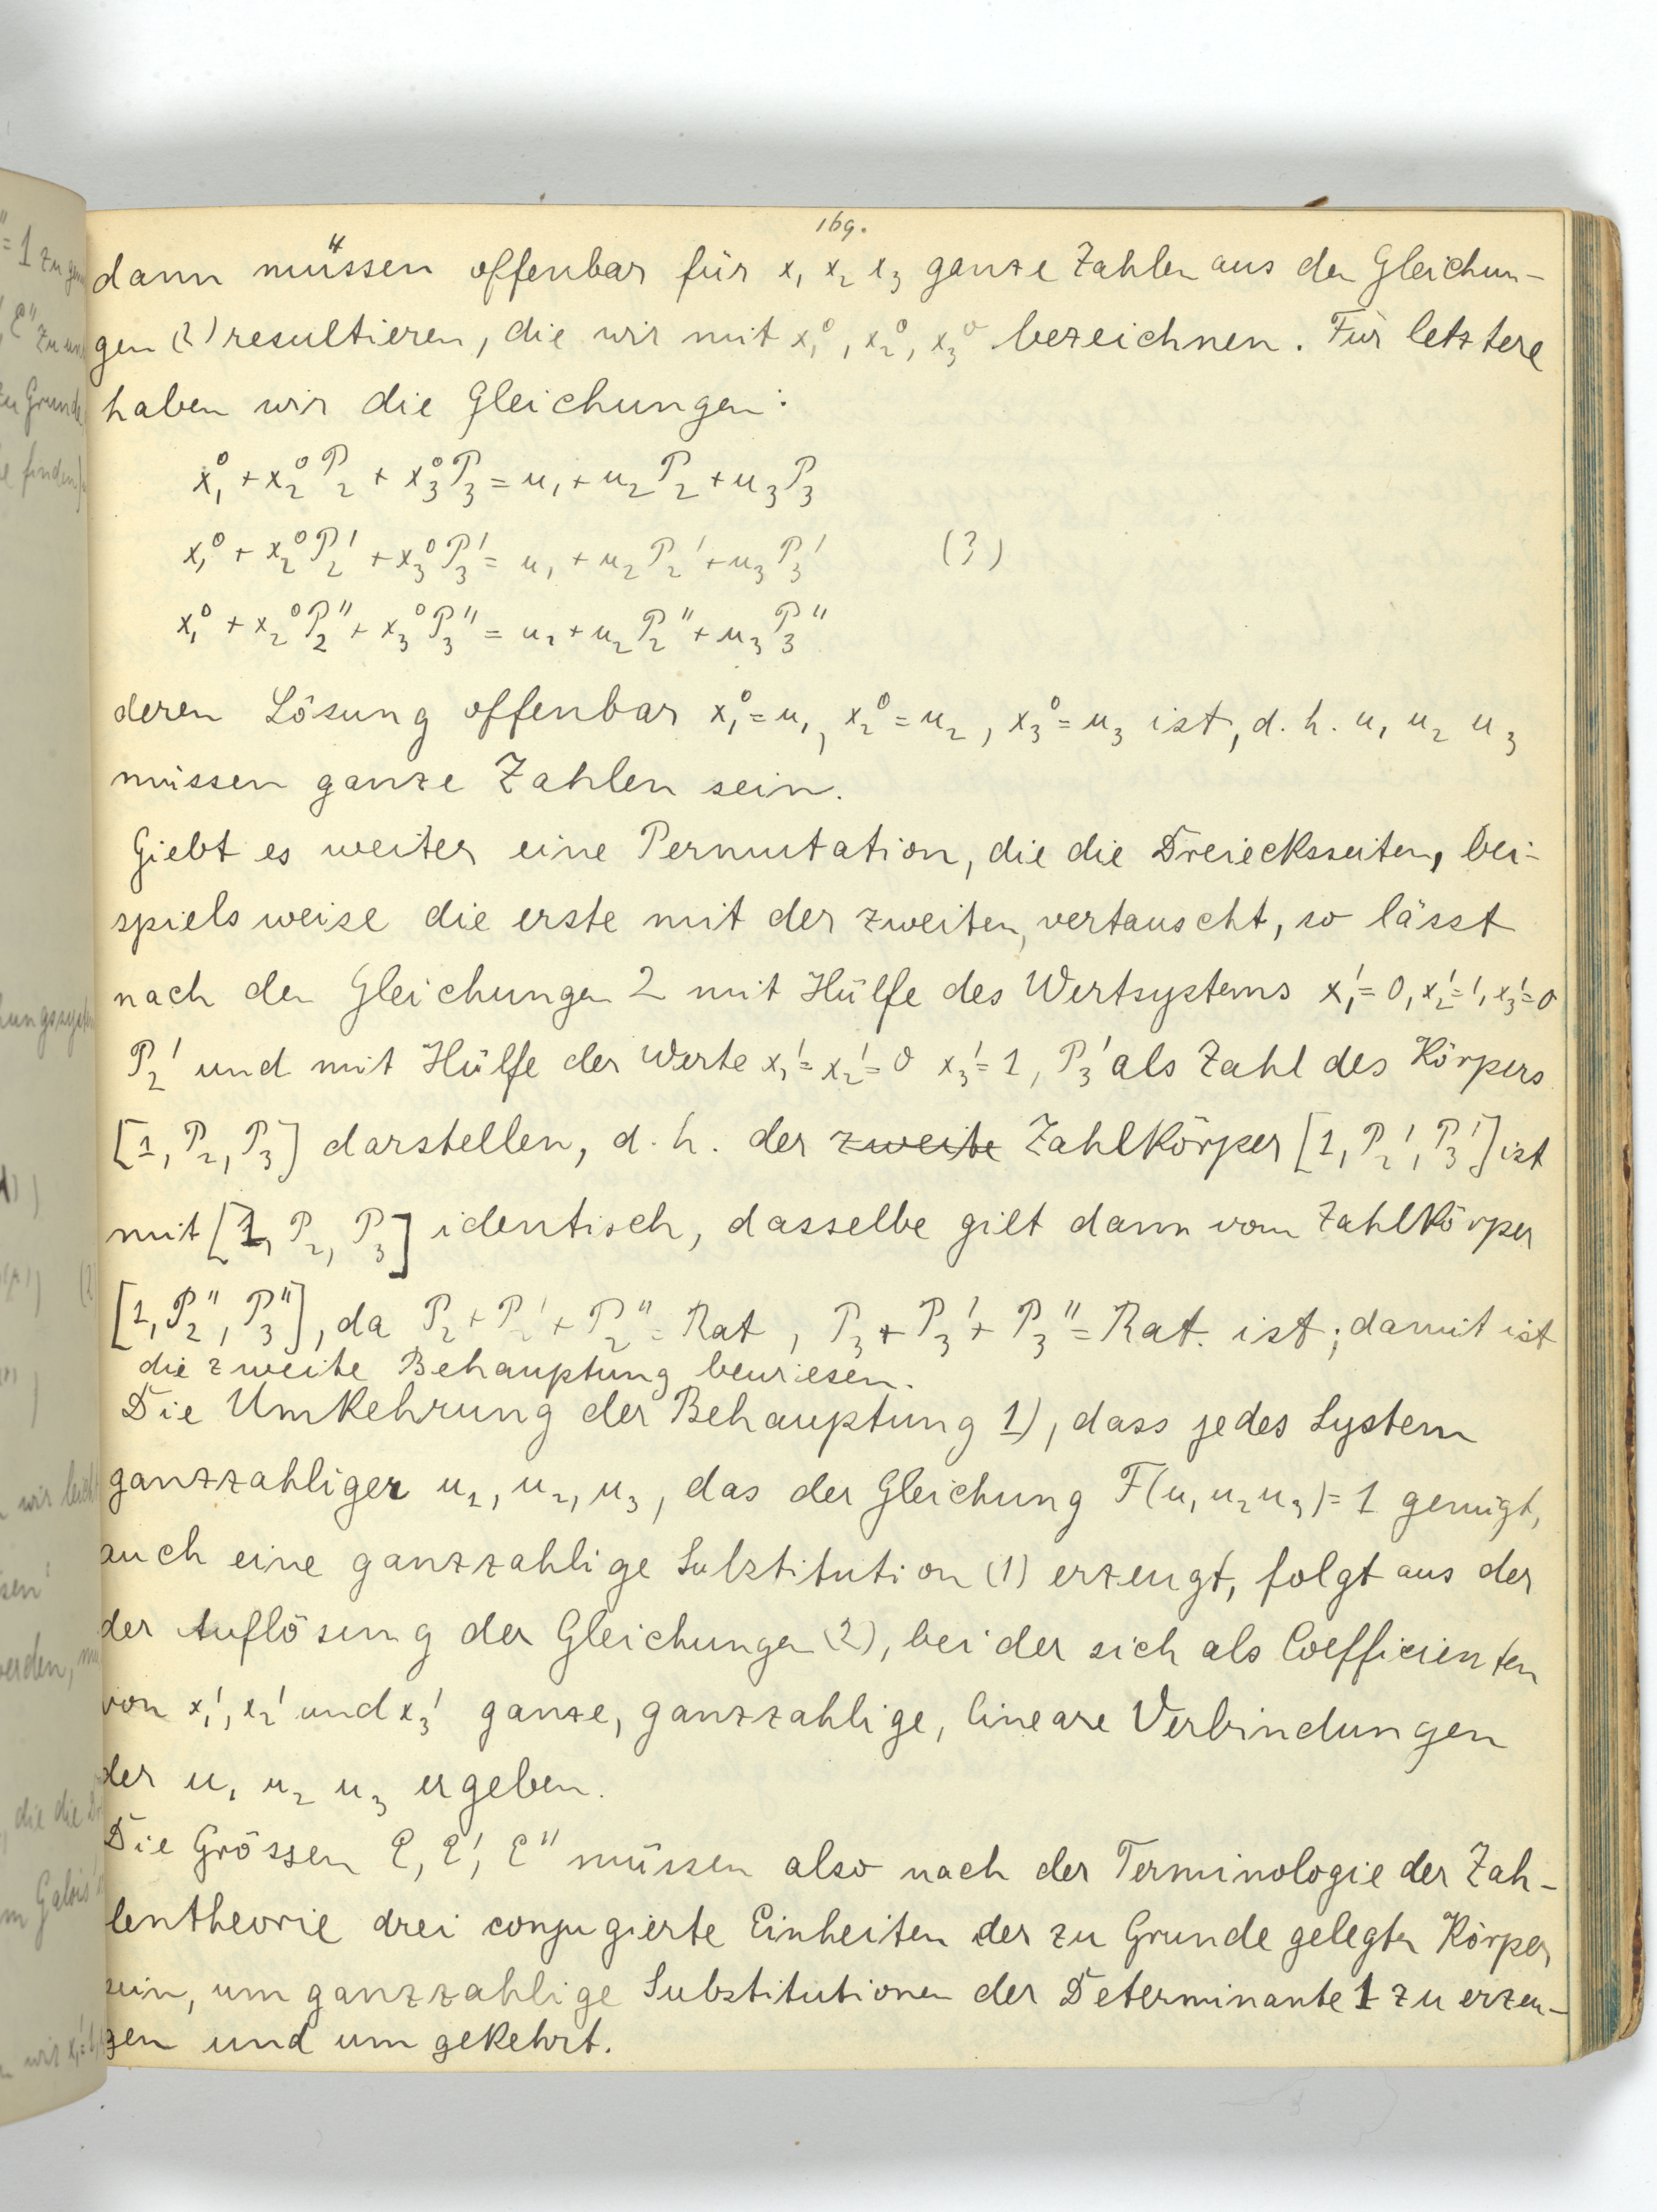 169.
dann müssen offenbar für x₁ x₂ x₃ ganze Zahlen aus den Gleichun-
gen (2) resultieren, die wir mit x₁⁰, x₂⁰, x₃⁰ bezeichnen. Für letztere
haben wir die Gleichungen:
x₁⁰ + x₂⁰ P₂ + x₃⁰ P₃ = u₁ + u₂ P₂ + u₃ P₃
x₁⁰ + x₂⁰ P₂' + x₃⁰ P₃' = u₁ + u₂ P₂' + u₃ P₃' (3)
x₁⁰ + x₂⁰ P₂'' + x₃⁰ P₃'' = u₁ + u₂ P₂'' + u₃ P₃''
deren Lösung offenbar x₁⁰ = u₁, x₂⁰ = u₂, x₃⁰ = u₃ ist, d. h. u₁ u₂ u₃
müssen ganze Zahlen sein.
Giebt es weiter eine Permutation, die die Dreiecksseiten, bei-
spielsweise die erste mit der zweiten, vertauscht, so lässt
nach den Gleichungen 2 mit Hülfe des Wertsystems x₁' = 0, x₂' = 1, x₃' = 0
P₂' und mit Hülfe der Werte x₁' = x₂' = 0 x₃' = 1, P₃' als Zahl des Körpers
[1, P₂, P₃] darstellen, d. h. der zweite Zahlkörper [1, P₂', P₃'] ist
mit [1, P₂, P₃] identisch, dasselbe gilt dann vom Zahlkörper
[1, P₂'', P₃''], da P₂ + P₂' + P₂'' = Rat, P₃ + P₃' + P₃'' = Rat. ist; damit ist
die zweite Behauptung bewiesen.
Die Umkehrung der Behauptung 1), dass jedes System
ganzzahliger u₁, u₂, u₃, das der Gleichung F(u₁ u₂ u₃) = 1 genügt,
auch eine ganzzahlige Substitution (1) erzeugt, folgt aus der
der Auflösung der Gleichungen (2), bei der sich als Coefficienten
von x₁', x₂' und x₃' ganze, ganzzahlige, lineare Verbindungen
der u₁ u₂ u₃ ergeben.
Die Grössen ε, ε', ε'' müssen also nach der Terminologie der Zah-
lentheorie drei conjugierte Einheiten der zu Grunde gelegten Körper
sein, um ganzzahlige Substitutionen der Determinante 1 zu erzeu-
gen und umgekehrt.